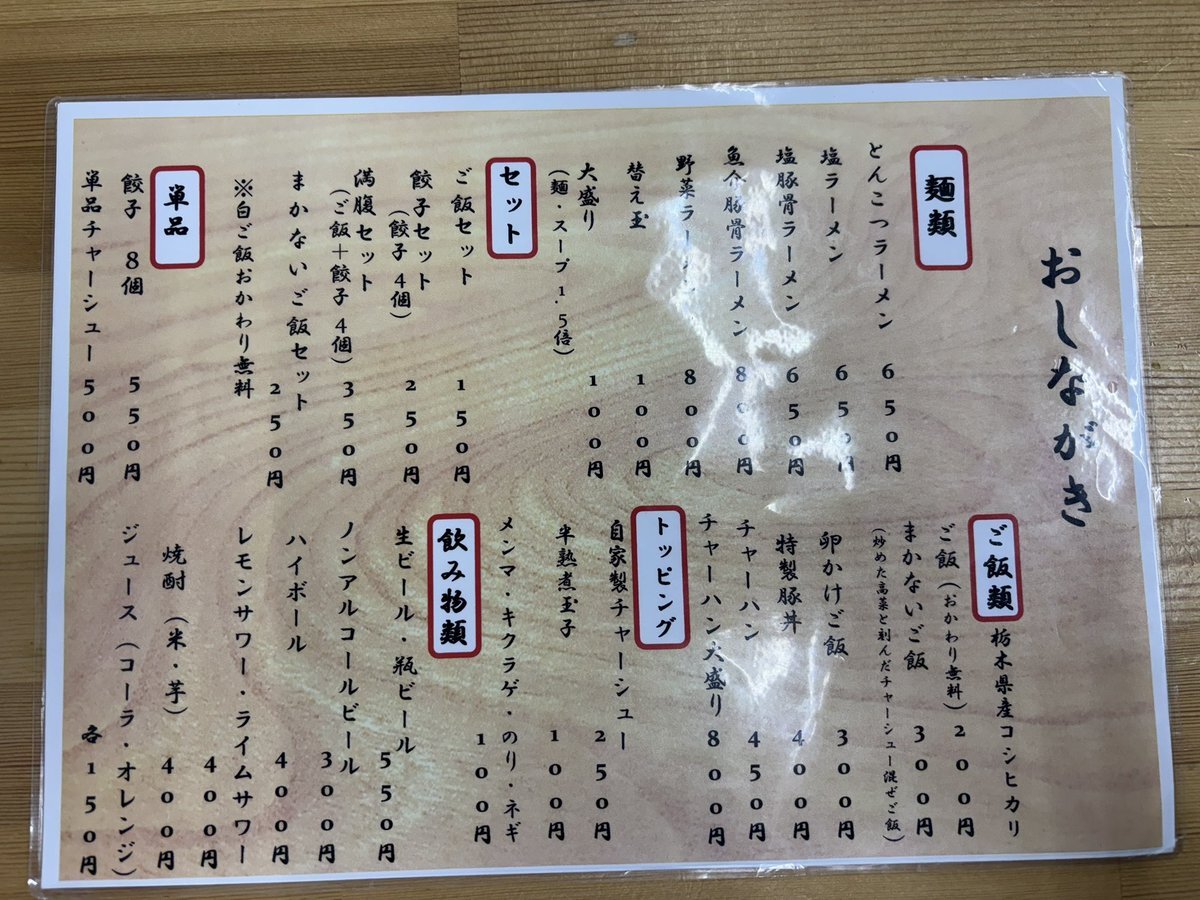 おしながき
麺類
とんこつラーメン 650円
塩ラーメン 650円
塩豚骨ラーメン 650円
魚介豚骨ラーメン 800円
野菜ラーメン 800円
替え玉 100円
大盛り 100円
(麺・スープ1.5倍)
セット
ご飯セット 150円
餃子セット 250円
(餃子4個)
満腹セット 350円
(ご飯+餃子4個)
まかないご飯セット 250円
※白ご飯おかわり無料
単品
餃子 8個 550円
単品チャーシュー 500円
ご飯類 栃木県産コシヒカリ
ご飯(おかわり無料) 200円
まかないご飯 300円
(炒めた高菜と刻んだチャーシュー混ぜご飯)
卵かけご飯 300円
特製豚丼 400円
チャーハン 450円
チャーハン大盛り 800円
トッピング
自家製チャーシュー 250円
半熟煮玉子 100円
メンマ・キクラゲ・のり・ネギ 100円
飲み物類
生ビール・瓶ビール 550円
ノンアルコールビール 300円
ハイボール 400円
レモンサワー・ライムサワー 400円
焼酎(米・芋) 400円
ジュース(コーラ・オレンジ) 各150円